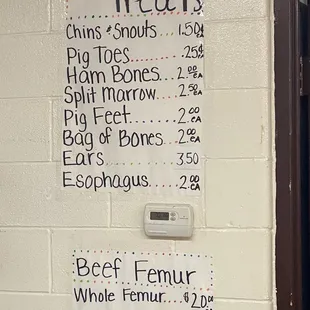 Chins & Snouts...1.50 EA
Pig Toes..........25¢
Ham Bones...2.00 EA
Split Marrow....2.50 EA
Pig Feet........2.00 EA
Bag of Bones..2.00 EA
Ears............3.50
Esophagus.....2.00 EA
Beef Femur
Whole Femur....